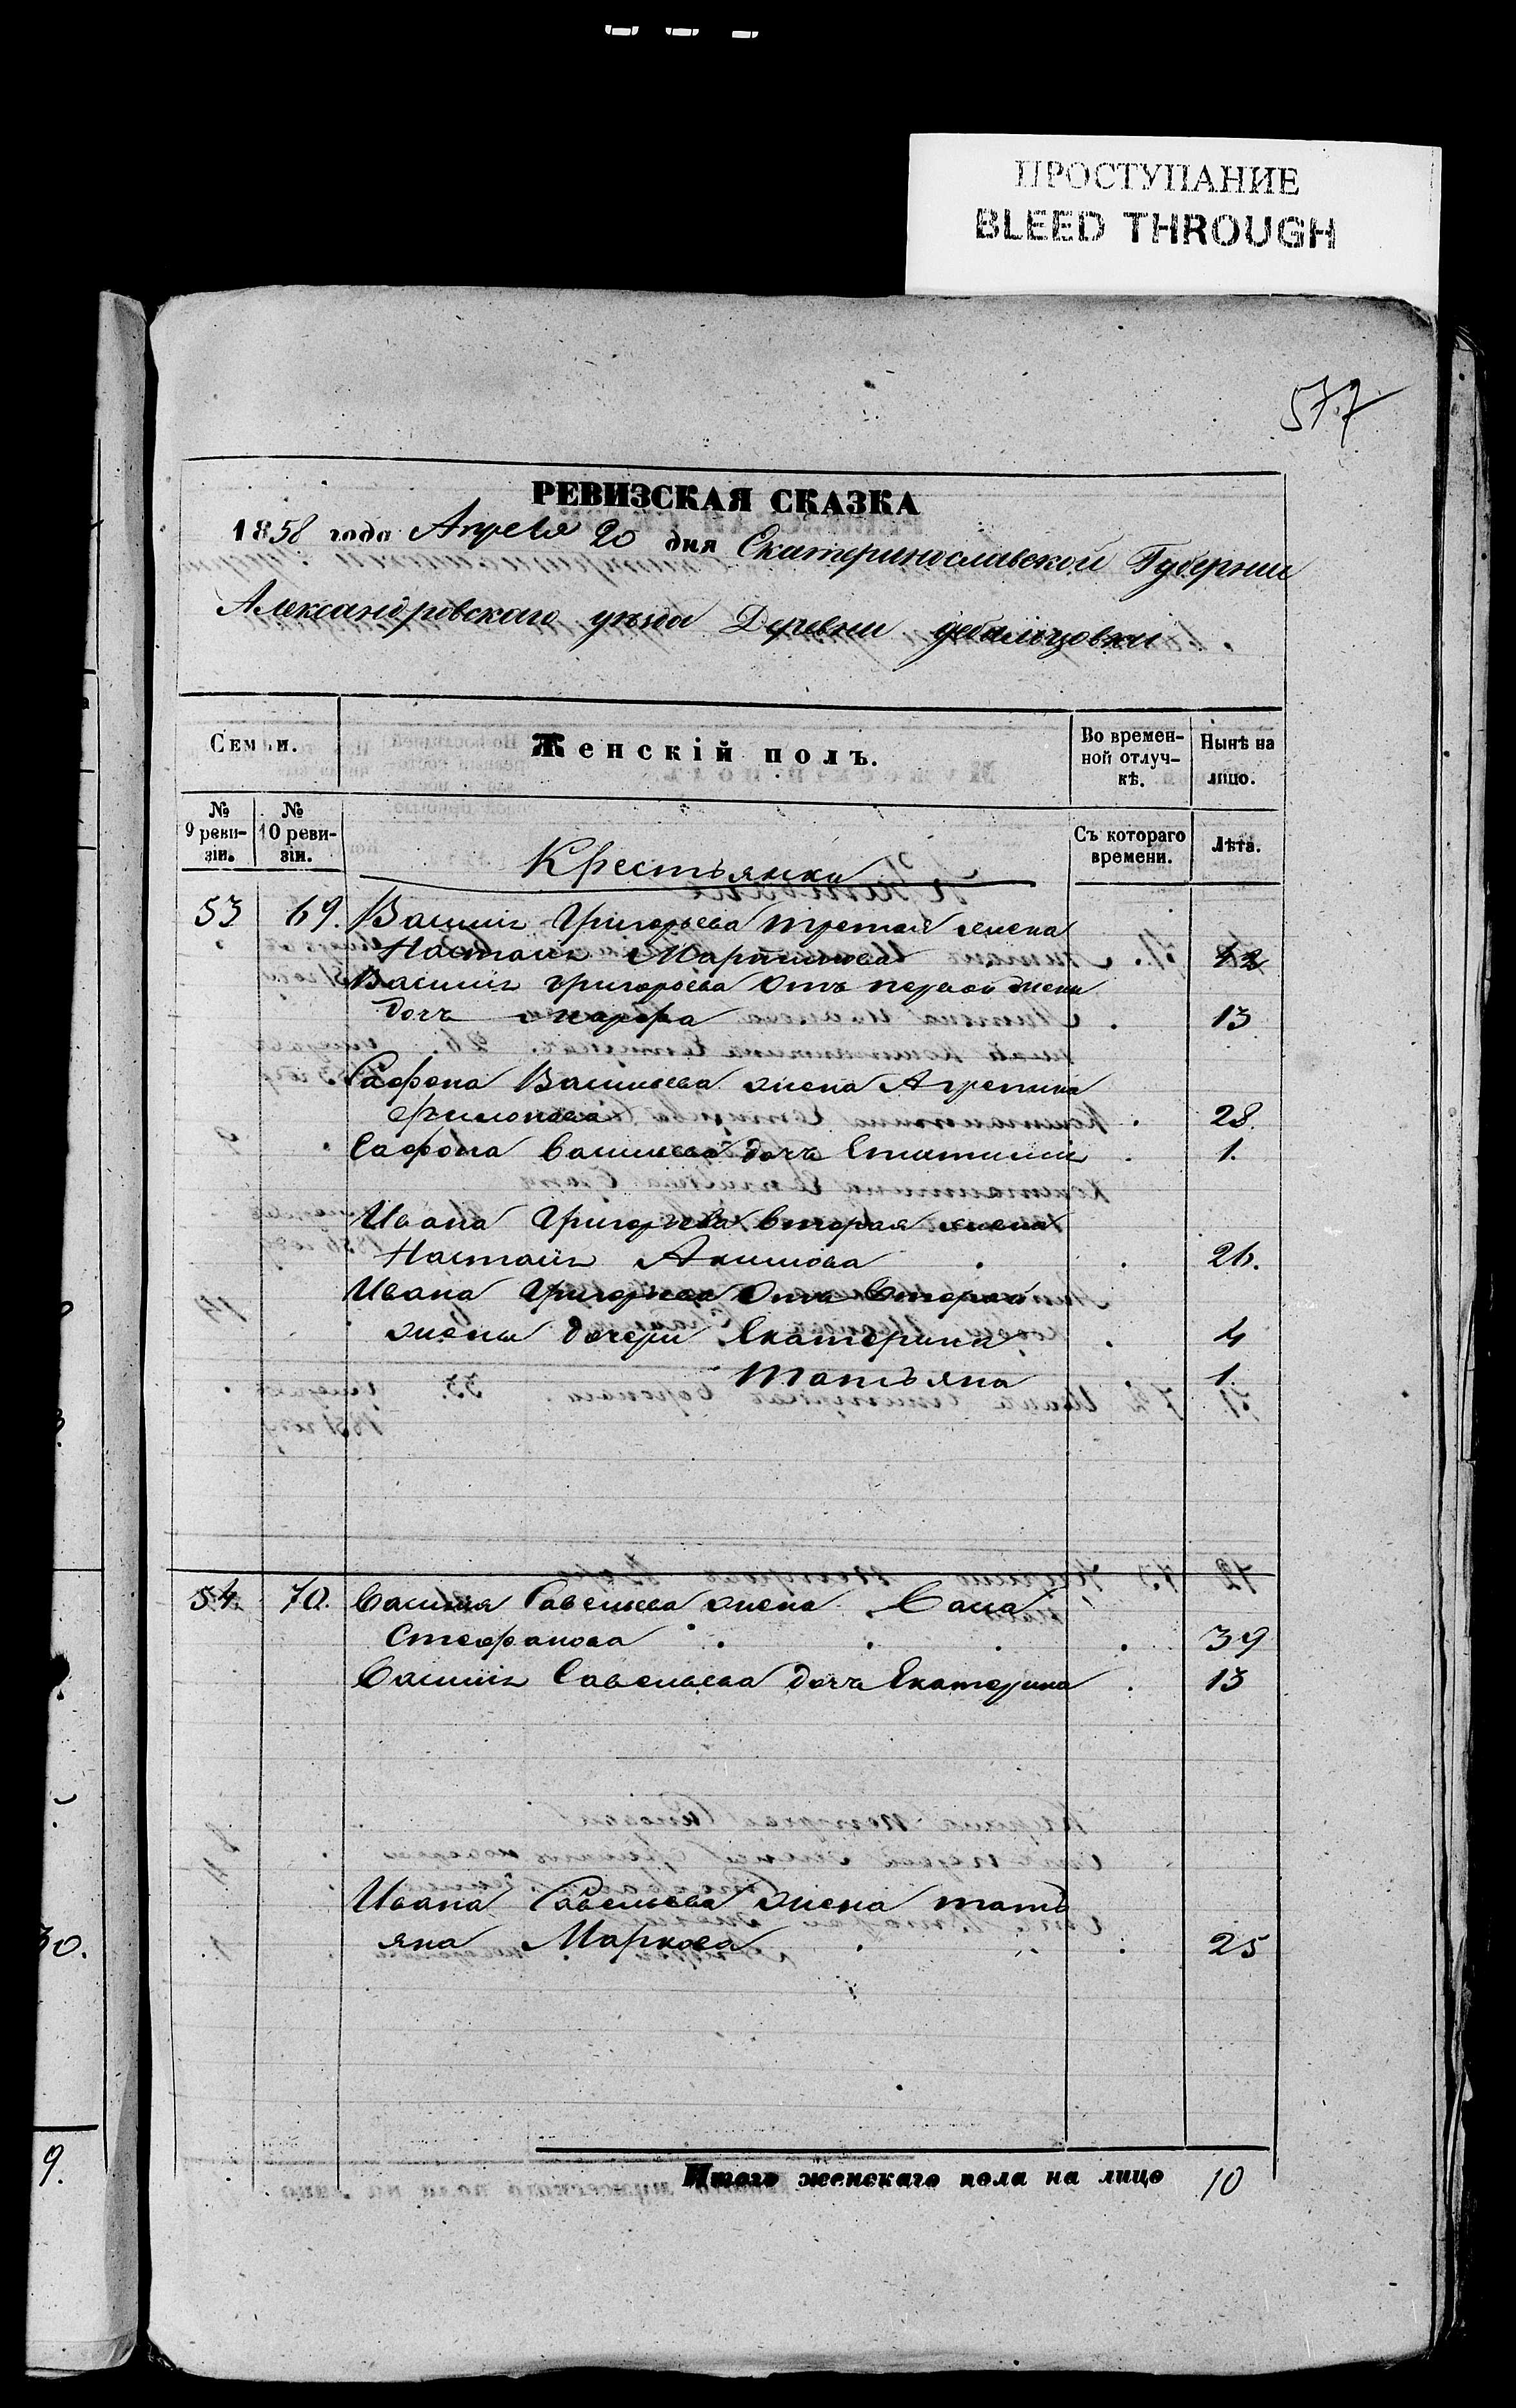 ПРОСТУПАНИЕ
BLEED THROUGH
577
РЕВИЗСКАЯ СКАЗКА
1858 года Апреля 20 дня Екатеринославской Губернии
Александровскаго уезда Деревни Дебальцовки
Семьи.
Женскій полъ.
Во времен-
ной отлуч-
кѣ.
Нынѣ на
лицо.
№
9 реви-
зіи.
№
10 реви-
зіи.
Съ котораго
времени.
Лѣта.
Крестьянки
53 69. Василія Григорьева третая жена
Настасія Мартинова 42
Василія Григорьева Отъ первой жены
дочь Марфа 13
Сафона Васильева жена Агрепина
Филонова 28.
Сафона Васильева дочь 1.
Ивана Григорьева вторая жена
Настасія Акимова 26.
Ивана Григорьева Отъ второй
жены дочери Екатерина 4
Татьяна 1.
54. 70. Василия Савельева жена
Стефанова 39
Василія Савельева дочь Екатерина 13
Ивана Савельева жена тать
яна Маркова 25
Итого женскаго пола на лицо 10
30.
9.